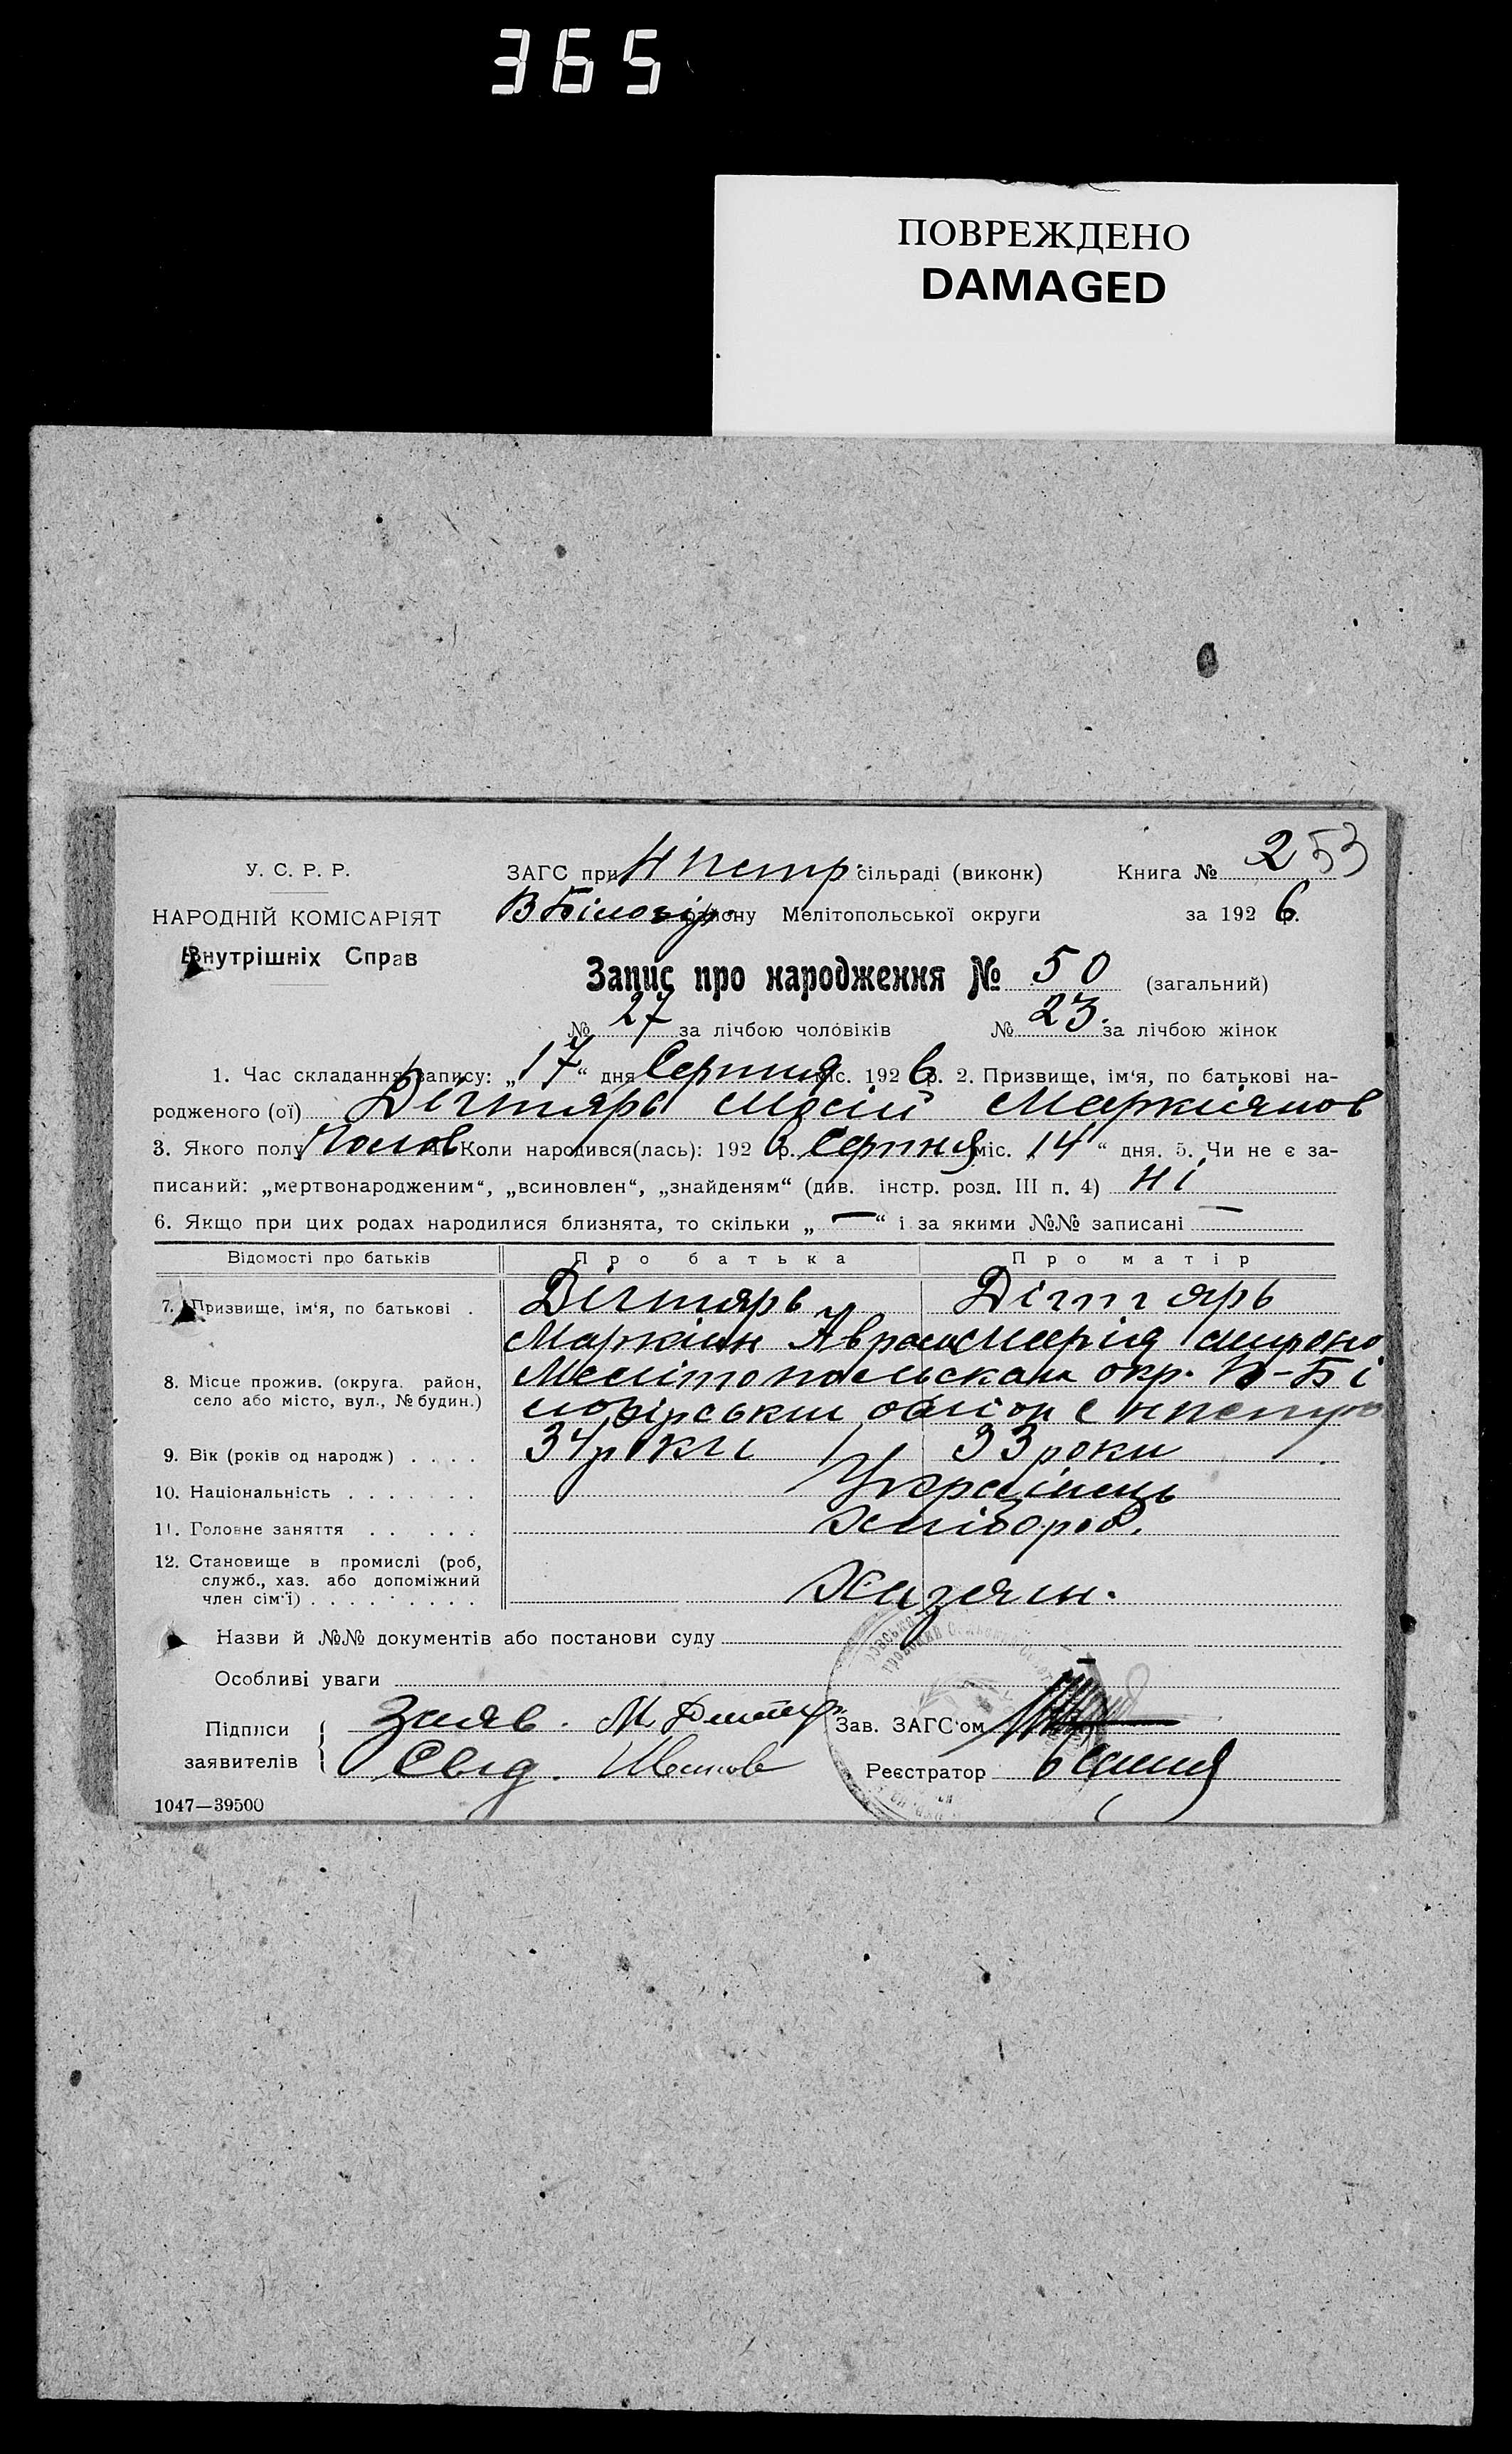 365
ПОВРЕЖДЕНО
DAMAGED
253
У. С. Р. Р.
ЗАГС при Н Петр. сільраді (виконк) Книга №
НАРОДНІЙ КОМІСАРІЯТ
В Білозір. району Мелітопольської округи за 1926 р.
Внутрішніх Справ
Запис про народження № 50 (загальний)
№ 27 за лічбою чоловіків № 23. за лічбою жінок
1. Час складання запису: „17“ дня Серпня міс. 1926 р. 2. Призвище, ім‘я, по батькові на-
родженого (ої) Дігтярь Мосій Маркиянов
3. Якого полу Чолов 4. Коли народився(лась): 1926 р. Серпня міс. „14“ дня. 5. Чи не є за-
писаний: „мертвонародженим“, „всиновлен“, „знайденям“ (див. інстр. розд. III п. 4) Ні
6. Якщо при цих родах народилися близнята, то скільки „—“ і за якими №№ записані —
Відомості про батьків Про батька Про матір
7. Призвище, ім‘я, по батькові . Дігтярь Дігтярь
Маркіян Аврам Марія Мироно
8. Місце прожив. (округа. район, Мелітопольская окр. В-Бі
село або місто, вул., № будин.) лозірськи с Нпетро
9. Вік (років од народж) . . . . 34 роки 33 роки
10. Національність . . . . . . . Українець
11. Головне заняття . . . . . Хлібороб.
12. Становище в промислі (роб,
служб., хаз. або допоміжний
член сім‘ї) . . . . . . . . . Хазяин.
Назви й №№ документів або постанови суду
Особливі уваги
Підписи Заяв. М. Дигтяр Зав. ЗАГС‘ом
заявителів Свид. Иванов Реєстратор
1047—39500